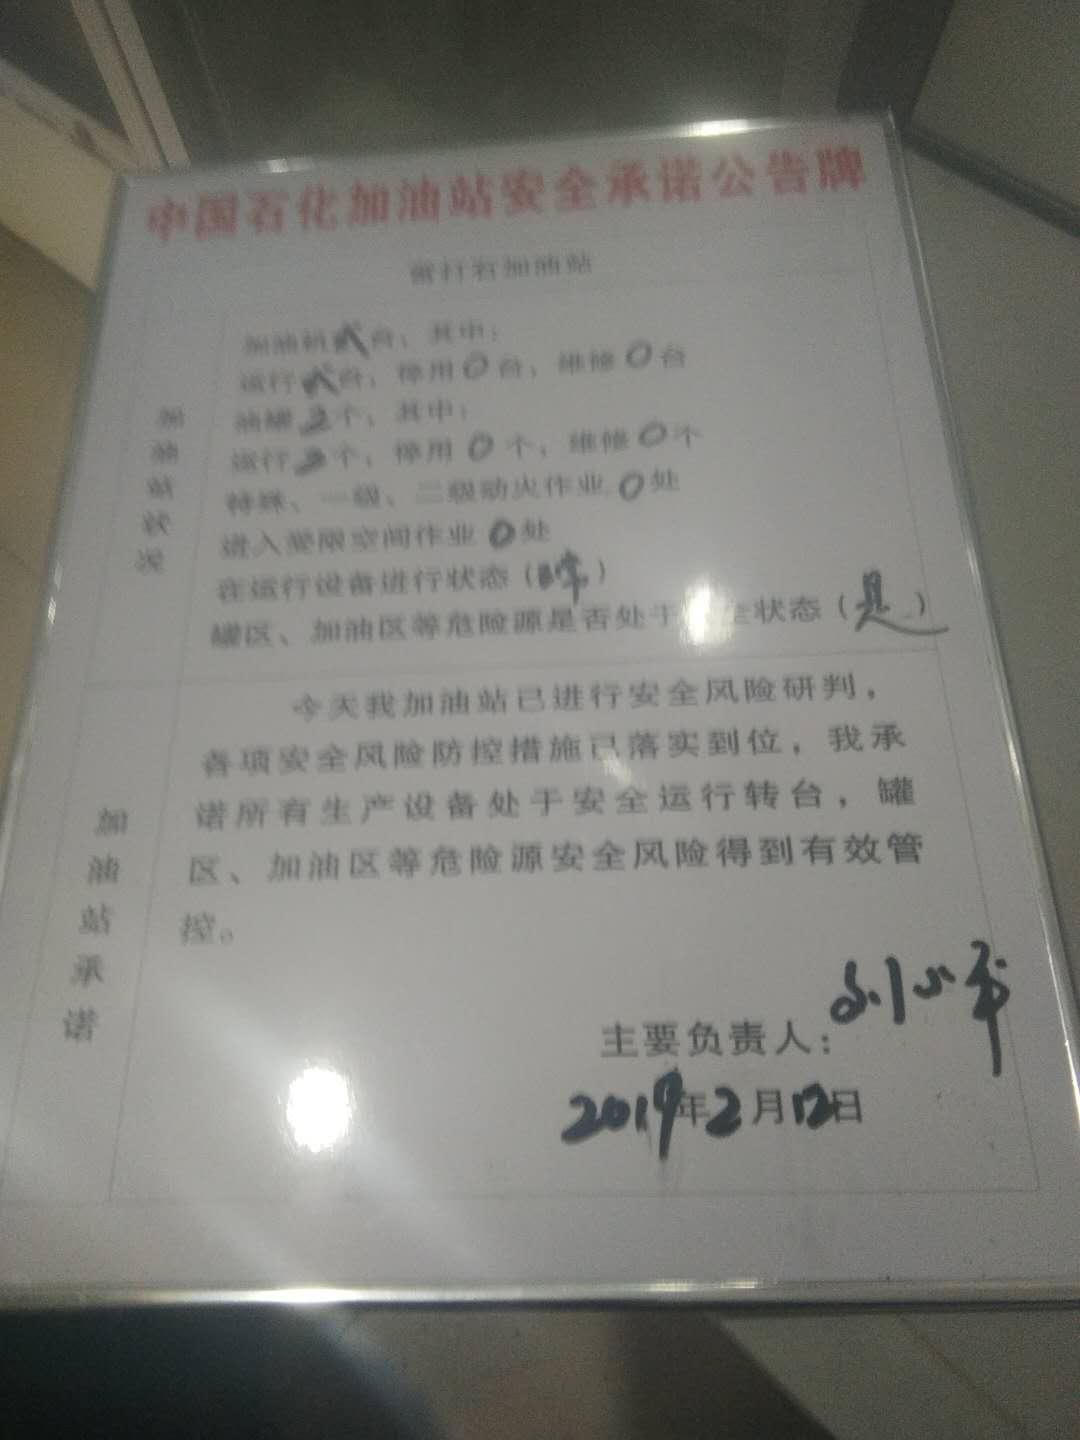 中国石化加油站安全承诺公告牌
行石加油站
加油站状况
加油机贰台，其中：
运行贰台，停用0台，维修0台
油罐3个，其中：
运行3个，停用0个，维修0个
特殊、一级、二级动火作业0处
进入受限空间作业0处
在运行设备进行状态（正常）
罐区、加油区等危险源是否处于 全状态（是）
加油站承诺
今天我加油站已进行安全风险研判，
各项安全风险防控措施已落实到位，我承
诺所有生产设备处于安全运行转台，罐
区、加油区等危险源安全风险得到有效管
控。
主要负责人：刘小
2019年2月12日